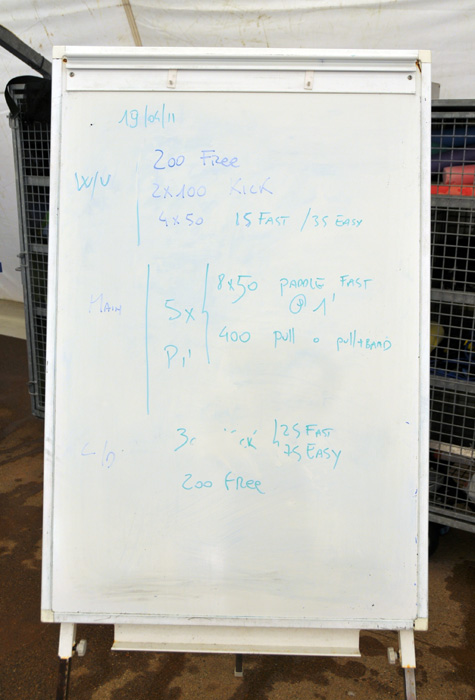 19/04/11
W/U
200 FREE
2x100 KICK
4x50 15 FAST / 35 EASY
MAIN
5x
8x50 PADDLE FAST
@ 1'
400 pull o pull+BAND
P1'
C/D
25 FAST
75 EASY
200 FREE